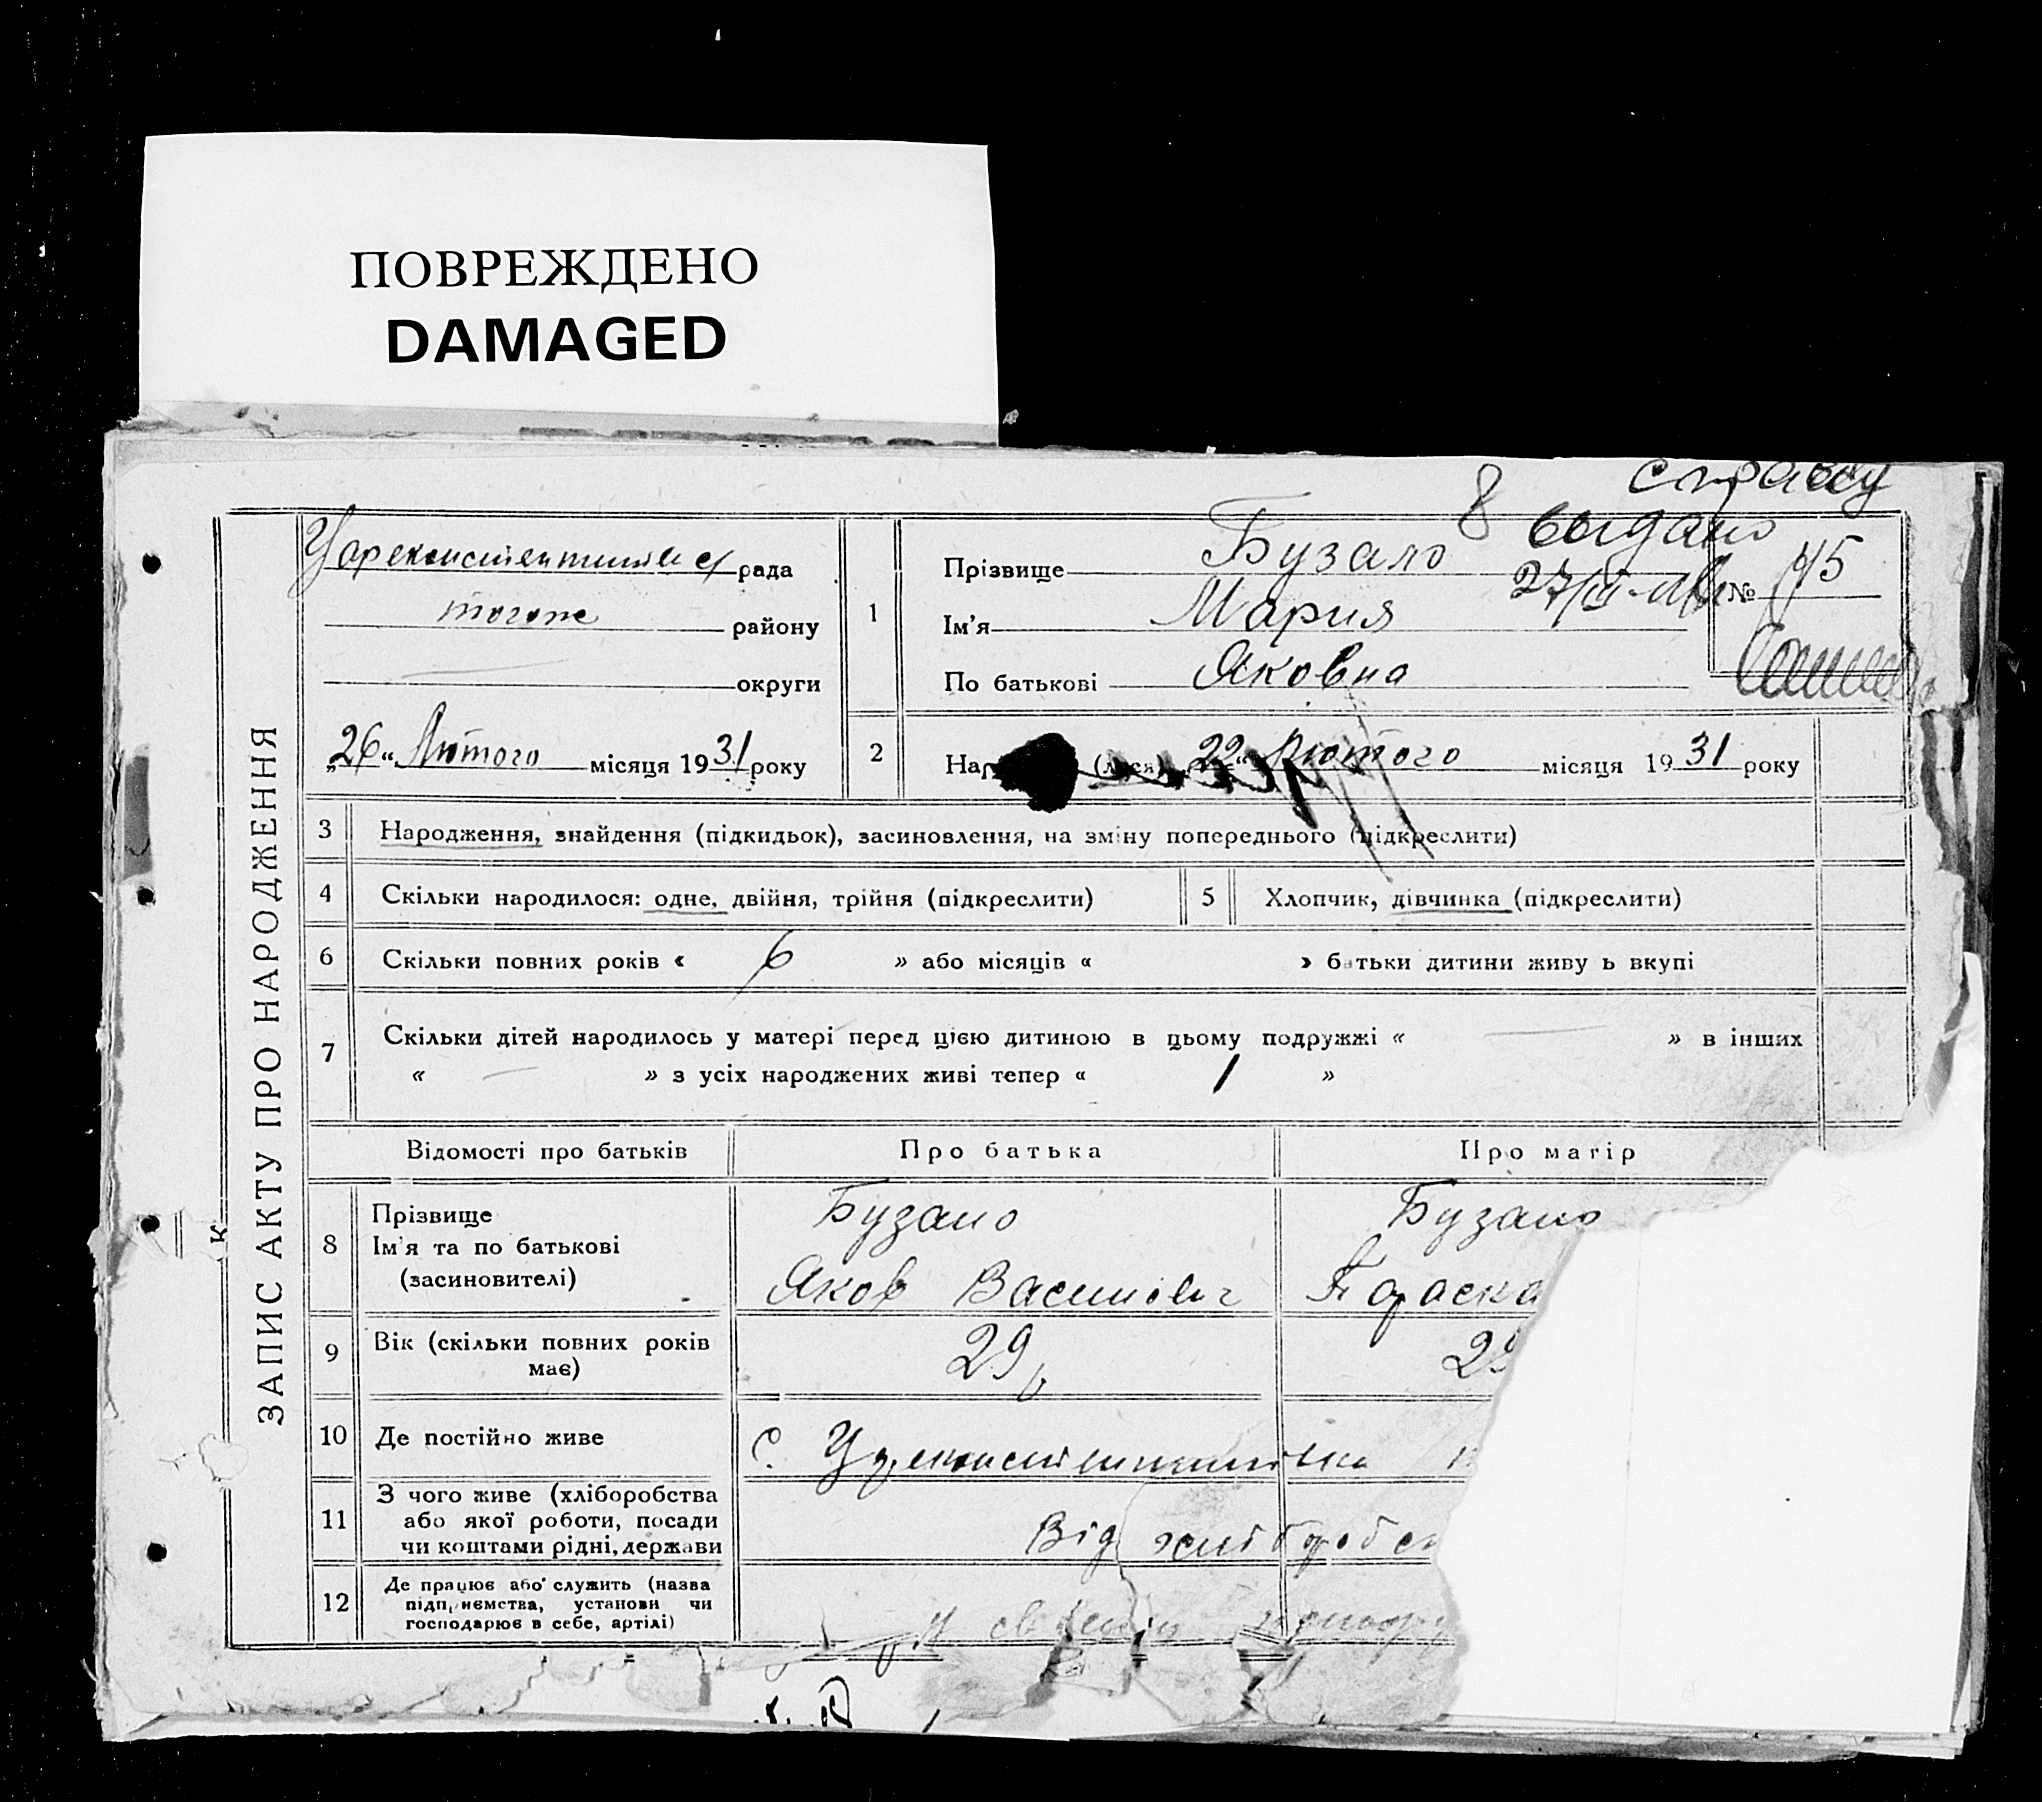 ПОВРЕЖДЕНО
DAMAGED
справку
8 выдано
ЗАПИС АКТУ ПРО НАРОДЖЕННЯ
рада
тогоже району
округи
„26“ Лютого місяця 1931 року
1 Прізвище Бузало
Ім'я Мария
По батькові Яковна
№ 45
2 22 “ Лютого місяця 1931 року
3 Народження, знайдення (підкидьок), засиновлення, на зміну попереднього (підкреслити)
4 Скільки народилося: одне, двійня, трійня (підкреслити)
5 Хлопчик, дівчинка (підкреслити)
6 Скільки повних років « 6 » або місяців « » батьки дитини живуть вкупі
7 Скільки дітей народилось у матері перед цією дитиною в цьому подружжі « — » в інших
« — » з усіх народжених живі тепер « 1 »
Відомості про батьків Про батька Про матір
8 Прізвище
Ім'я та по батькові
(засиновителі)
Бузало
Яков Васильович
Бузало
Параска
9 Вік (скільки повних років
має)
29
29
10 Де постійно живе
с.
11 З чого живе (хліборобства
або якої роботи, посади
чи коштами рідні, держави
Від
12 Де працює або служить (назва
підприємства, установи чи
господарює в себе, артілі)